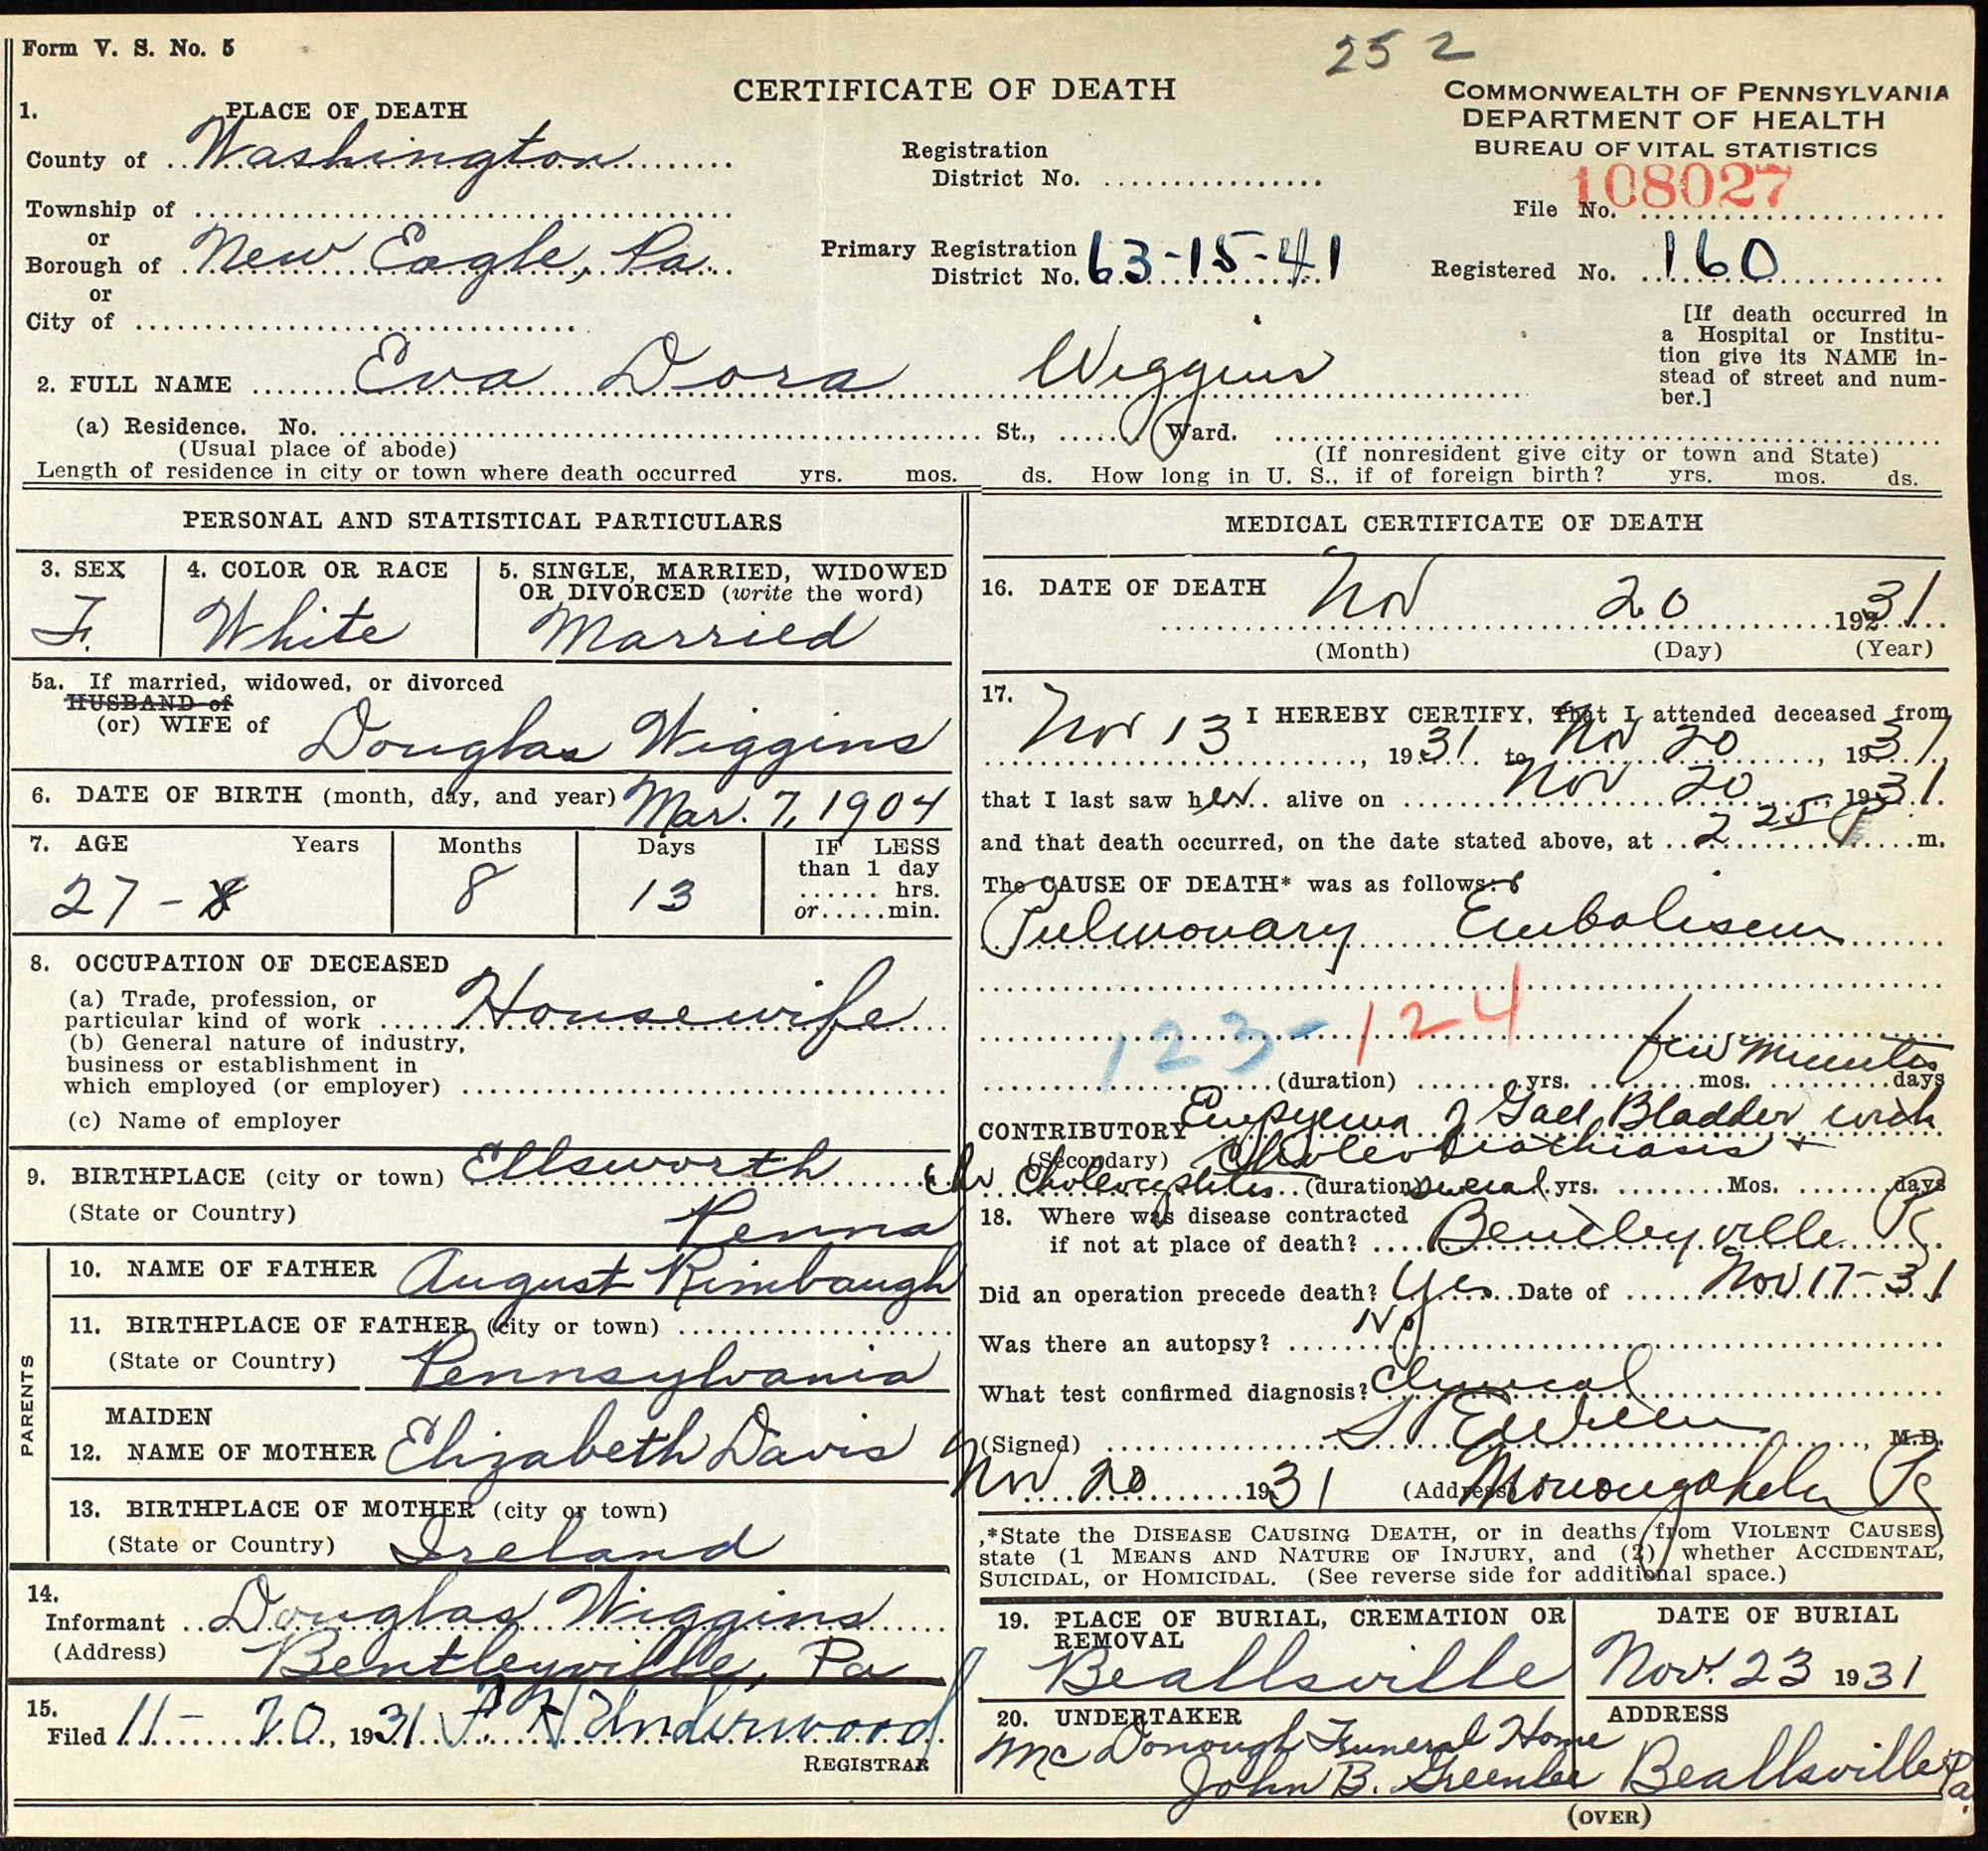 Form V. S. No. 5
25 2
CERTIFICATE OF DEATH
COMMONWEALTH OF PENNSYLVANIA
DEPARTMENT OF HEALTH
BUREAU OF VITAL STATISTICS
1. PLACE OF DEATH
County of Washington
Registration
District No.
File No. 108027
Township of
or
Borough of New Eagle, Pa.
Primary Registration
District No. 63-15-41
Registered No. 160
or
City of
[If death occurred in
a Hospital or Institu-
tion give its NAME in-
stead of street and num-
ber.]
2. FULL NAME Eva Dora Wiggins
(a) Residence. No. St., Ward.
(Usual place of abode)
(If nonresident give city or town and State)
Length of residence in city or town where death occurred yrs. mos. ds. How long in U. S., if of foreign birth? yrs. mos. ds.
PERSONAL AND STATISTICAL PARTICULARS
3. SEX
F.
4. COLOR OR RACE
White
5. SINGLE, MARRIED, WIDOWED
OR DIVORCED (write the word)
Married
5a. If married, widowed, or divorced
HUSBAND of
(or) WIFE of Douglas Wiggins
6. DATE OF BIRTH (month, day, and year) Mar. 7, 1904
7. AGE Years
27 - 8
Months
8
Days
13
IF LESS
than 1 day
hrs.
or min.
8. OCCUPATION OF DECEASED
(a) Trade, profession, or
particular kind of work Housewife
(b) General nature of industry,
business or establishment in
which employed (or employer)
(c) Name of employer
9. BIRTHPLACE (city or town) Ellsworth
(State or Country) Penna
PARENTS
10. NAME OF FATHER August Rimbaugh
11. BIRTHPLACE OF FATHER (city or town)
(State or Country) Pennsylvania
MAIDEN
12. NAME OF MOTHER Elizabeth Davis
13. BIRTHPLACE OF MOTHER (city or town)
(State or Country) Ireland
14.
Informant Douglas Wiggins
(Address) Bentleyville, Pa
15.
Filed 11-20, 1931 F. H Underwood
REGISTRAR
MEDICAL CERTIFICATE OF DEATH
16. DATE OF DEATH Nov 20 1931
(Month) (Day) (Year)
17. I HEREBY CERTIFY, That I attended deceased from
Nov 13, 1931 to Nov 20, 1931,
that I last saw her alive on Nov 20, 1931.
and that death occurred, on the date stated above, at 2 25 P m.
The CAUSE OF DEATH* was as follows:
Pulmonary Embolism
123-124
few minutes
(duration) yrs. mos. days
CONTRIBUTORY Empyema of Gall Bladder with
(Secondary) Cholelithiasis +
Chr Cholecystitis (duration) several yrs. Mos. days
18. Where was disease contracted
if not at place of death? Bentleyville Pa
Did an operation precede death? Yes Date of Nov 17-31
Was there an autopsy? No
What test confirmed diagnosis? Clinical
(Signed) M.D.
Nov 20 1931 (Address) Monongahela Pa
*State the DISEASE CAUSING DEATH, or in deaths from VIOLENT CAUSES,
state (1 MEANS AND NATURE OF INJURY, and (2) whether ACCIDENTAL,
SUICIDAL, or HOMICIDAL. (See reverse side for additional space.)
19. PLACE OF BURIAL, CREMATION OR
REMOVAL
Beallsville
DATE OF BURIAL
Nov. 23 1931
20. UNDERTAKER
McDonough Funeral Home
John B. Greenlee
ADDRESS
Beallsville Pa.
(OVER)